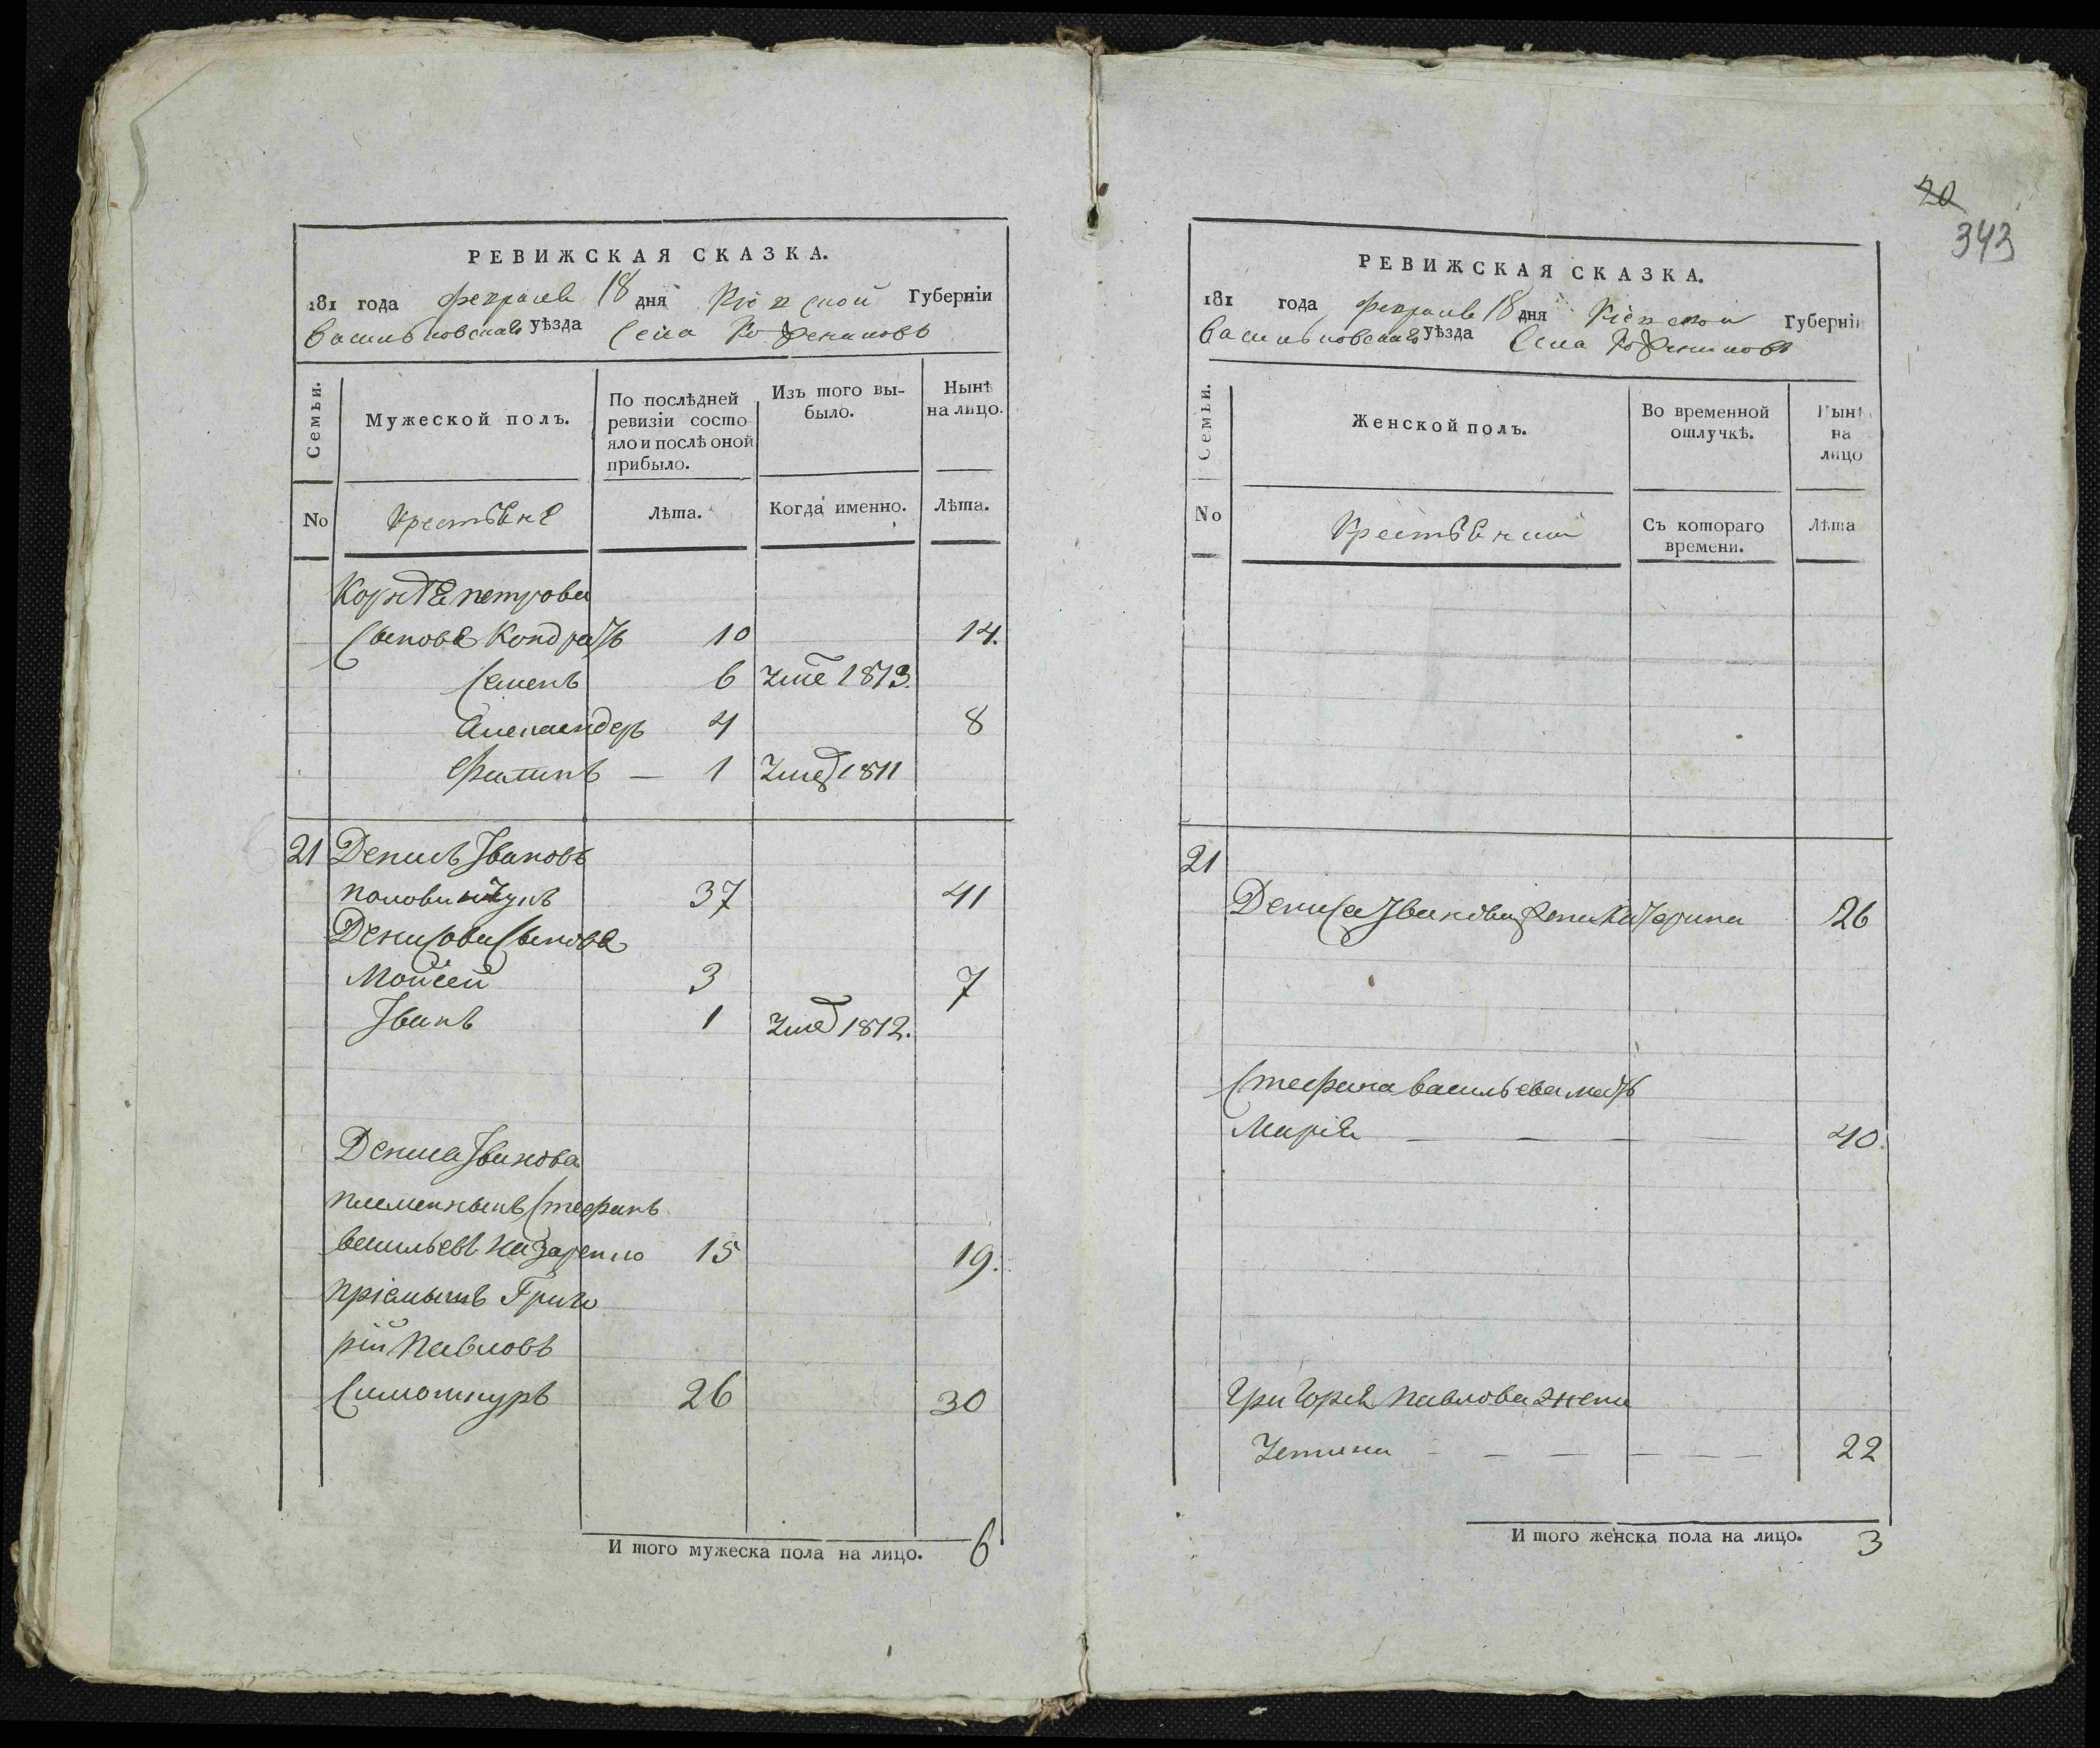 РЕВИЖСКАЯ СКАЗКА.
181 года февраля 18 дня Кіевской Губерніи
Васильковскаго уѣзда Села Кожениковъ
Семьи.
Мужеской полъ.
По послѣдней ревизіи состояло и послѣ оной прибыло.
Изъ того выбыло.
Нынѣ на лицо.
No
Крестьяне
Лѣта.
Когда именно.
Лѣта.
Корнѣя петрова
Сынове Кондратъ 10 14.
Семенъ 6 Уме 1813.
Александеръ 4 8
Филипъ — 1 Умер 1811
21 Денисъ Івановъ
половинчукъ 37 41
Денисови Сынове
Мойсей 3 7
Іванъ 1 Умер 1812.
Дениса Іванова
племенныкъ Стефанъ
васильевъ назаренко 15 19.
пріемышъ Григо
рій Павловъ
Самоткуръ 26 30
И того мужеска пола на лицо. 6
20
343
РЕВИЖСКАЯ СКАЗКА.
181 года февраля 18 дня Кіевской Губерніи
Васильковскаго уѣзда Села Кожениковъ
Семьи.
Женской полъ.
Во временной отлучкѣ.
Нынѣ на лицо
No
Крестьянки
Съ котораго времени.
Лѣта
21
Дениса Іванова жена Катерина 26
Стефана васильева мать
Марія — — — — 40.
Григорія Павлова жена
Устина — — — — — — 22
И того женска пола на лицо. 3